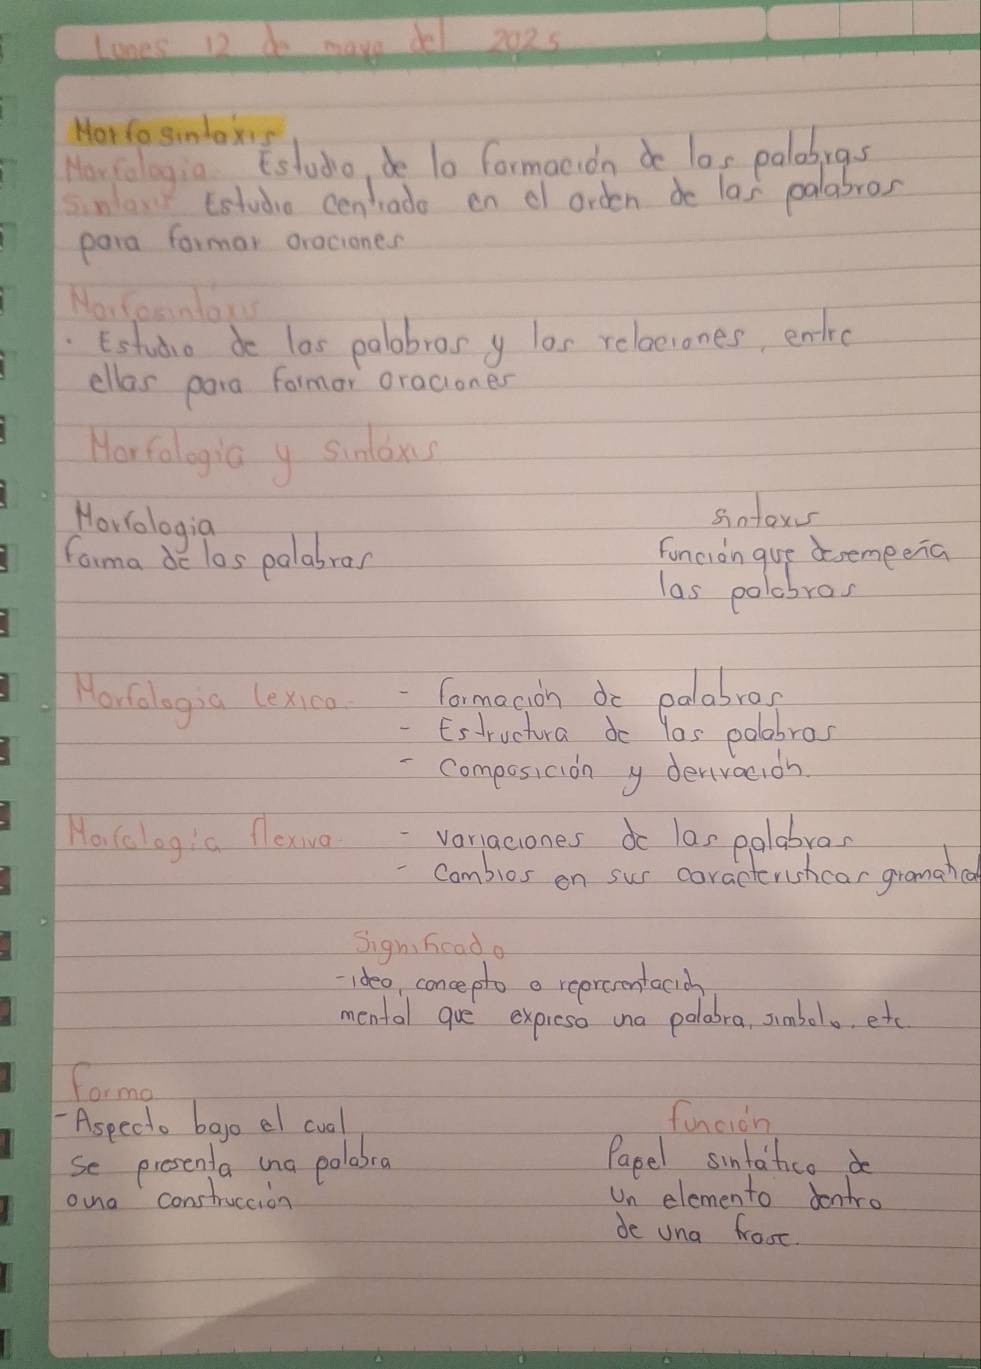 Lunes 12 de mayo del 2025
Morfosintaxis
Morfologia Estudio de la formación de las palabras
Sintaxis Estudio centrado en el orden de las palabras
para formar oraciones
Morfosintaxis
. Estudio de las palabras y las relaciones, entre
ellas para formar oraciones
Morfologia y sintáxis
Morfologia
sintaxis
forma de las palabras
función que desempeña
las palabras
Morfologia lexica - formación de palabras
- Estructura de las palabras
- composición y derivación.
Morfologia flexiva - variaciones de las palabras
- Cambios en sus caracteristicas gramatical
Significado
- idea, concepto o representación
mental que expresa una palabra, simbolo, etc.
forma
- Aspecto bajo el cual
se presenta una palabra
o una construcción
función
Papel sintático de
un elemento dentro
de una frase.